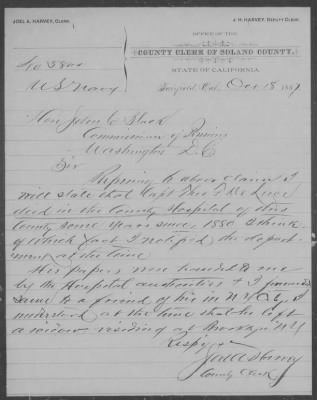 JOEL A. HARVEY, CLERK.
J. H. HARVEY, DEPUTY CLERK.
OFFICE OF THE
COUNTY CLERK OF SOLANO COUNTY,
STATE OF CALIFORNIA.
Fairfield, Cal., 18 1887
No
U S Navy
Hon John C Black
Commissioner of
Washington D.C
Sir
to above claim I
will state that Capt
died in the County Hospital of this
County some years since, 1880 I think
of which fact I notified the depart-
ment at the time
His papers were handed to me
by the Hospital authorities & I
same to a friend of his in N.Y. City I
understood at the time that he left
a widow residing at N.Y
Respy
Joel A Harvey
County Clerk